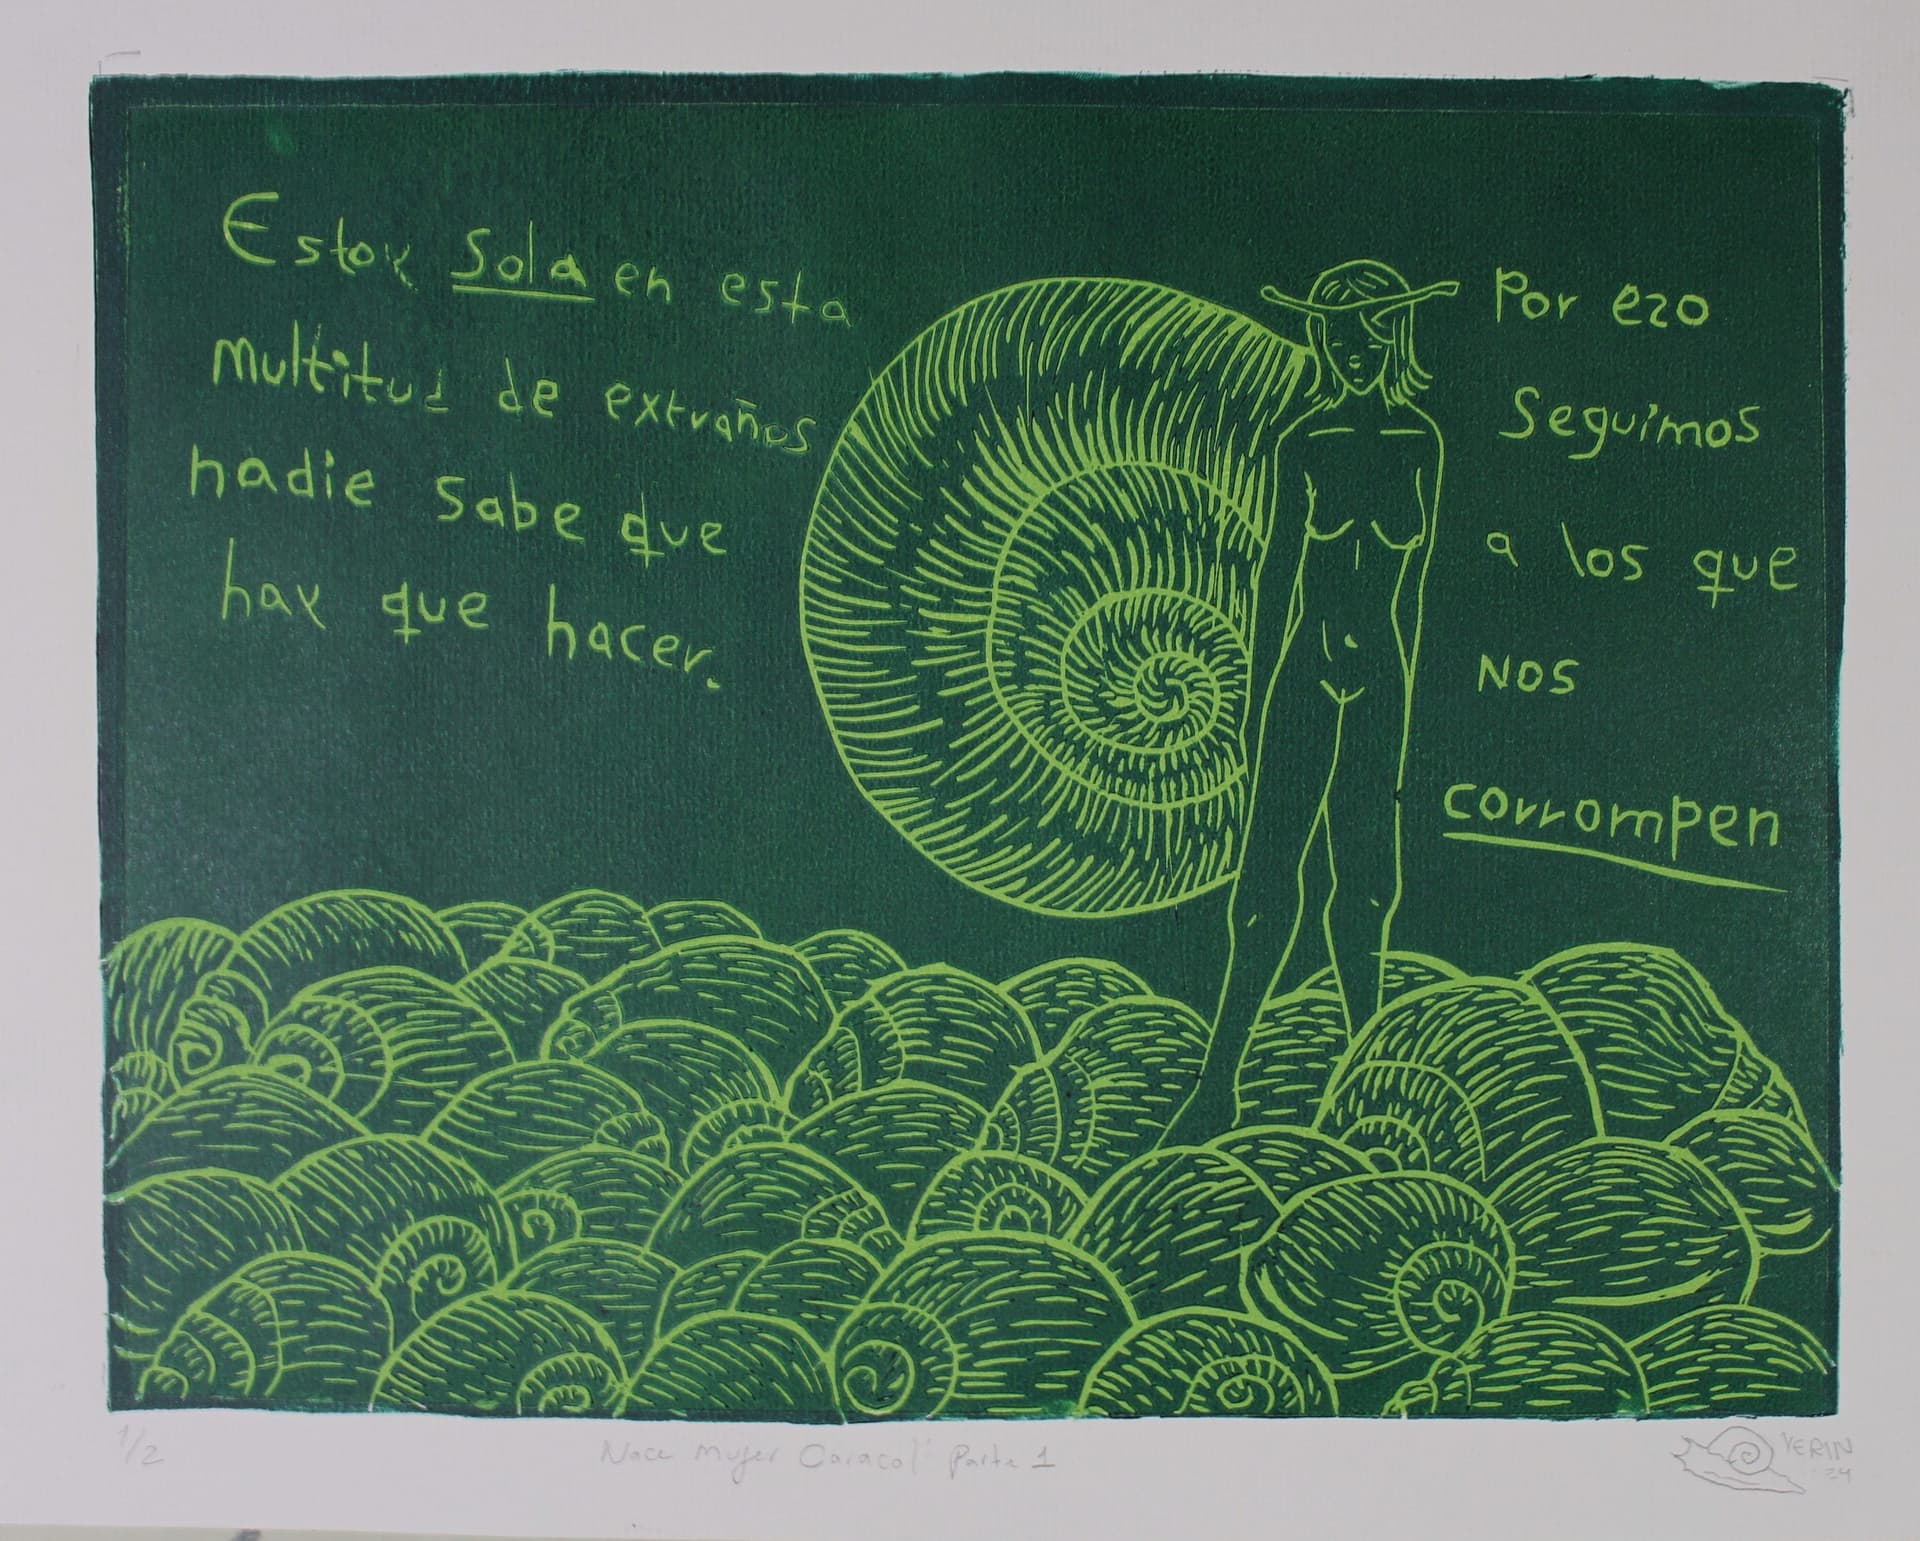 Estoy sola en esta
multitud de extraños
nadie sabe que
hay que hacer.
Por ezo
seguimos
a los que
nos
corrompen
1/2
Nace Mujer Caracol Parte 1
VERIN
24